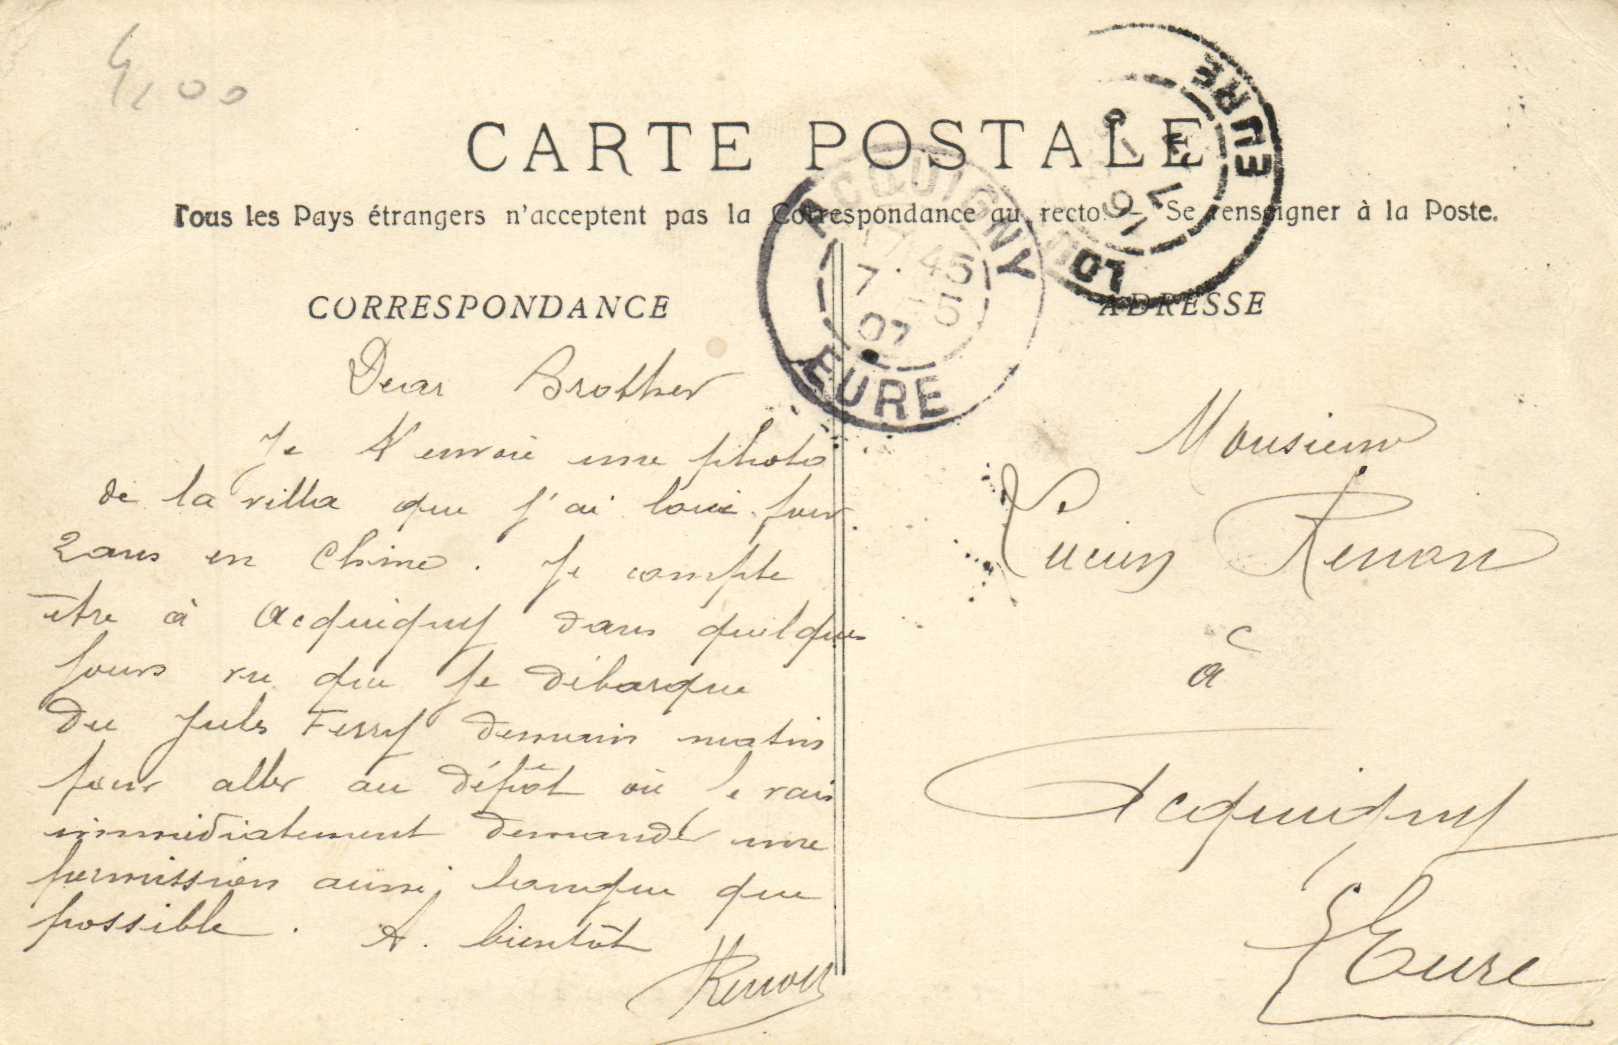 4,00
CARTE POSTALE
Tous les Pays étrangers n'acceptent pas la Correspondance au recto. — Se renseigner à la Poste.
ACQUIGNY
7 45
7 5
07
EURE
EURE
LOU
CORRESPONDANCE
Dear Brother
Je t'envoie une photo
de la villa que j'ai louée pour
2 ans en Chine. Je compte
être à Acquigny dans quelques
jours vu que je débarque
du Jules Ferry demain matin
pour aller au dépôt où je vais
immédiatement demander une
permission aussi longue que
possible. A. bientôt
Renon
ADRESSE
Monsieur
Lucien Renon
à
Acquigny
Eure